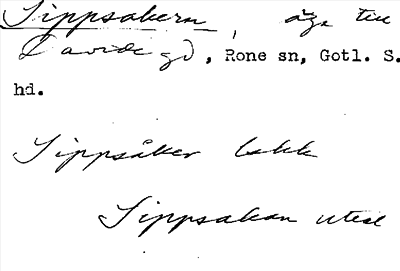 Sippsakern, äga till
Davide gd, Rone sn, Gotl. S.
hd.
Sippsåker
Sippsakan uttal